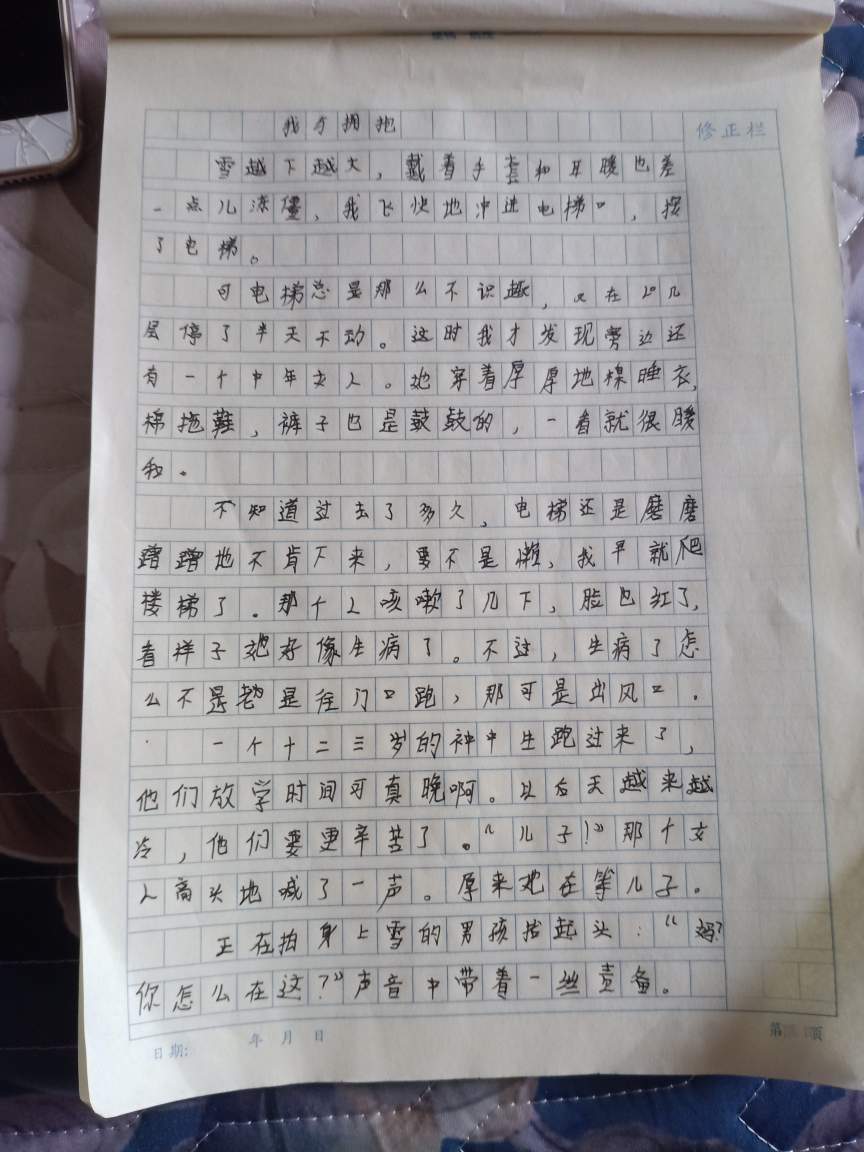 我才拥抱
修正栏
雪越下越大，戴着手套和耳暖也差
一点儿冻僵，我飞快地冲进电梯口，按
了电梯。
可电梯总是那么不识趣，又在20几
层停了半天不动。这时我才发现旁边还
有一个中年女人。她穿着厚厚地棉睡衣，
棉拖鞋，裤子也是鼓鼓的，一看就很暖
和。
不知道过去了多久，电梯还是磨磨
蹭蹭地不肯下来，要不是懒，我早就爬
楼梯了。那个人咳嗽了几下，脸也红了，
看样子她好像生病了。不过，生病了怎
么不是老是往门口跑，那可是出风口。
一个十二三岁的初中生跑过来了，
他们放学时间可真晚啊。以后天越来越
冷，他们要更辛苦了。“儿子！”那个女
人高头地喊了一声。原来她在等儿子。
正在拍身上雪的男孩抬起头：“妈？
你怎么在这？”声音中带着一丝责备。
日期： 年 月 日
第 页